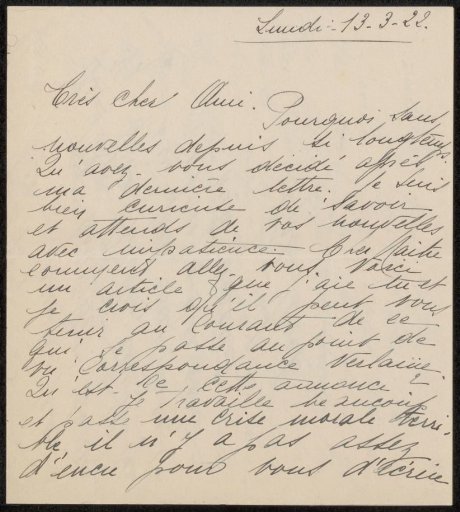 Lundi - 13-3-22.
Très cher Ami. Pourquoi sans
nouvelles depuis si longtemps.
Qu'avez-vous décidé après
ma dernière lettre. Je suis
bien curieuse de savoir
et attends de vos nouvelles
avec impatience. Cher Maître
comment allez-vous. Voici
un article que j'aie lu et
je crois qu'il peut vous
tenir au courant de ce
qui se passe au point de
vu Correspondance Verlaine.
Qu'est-ce cette annonce?
Je travaille beaucoup
et passe une crise morale terri-
ble il n'y a pas assez
d'encre pour vous d'écrire